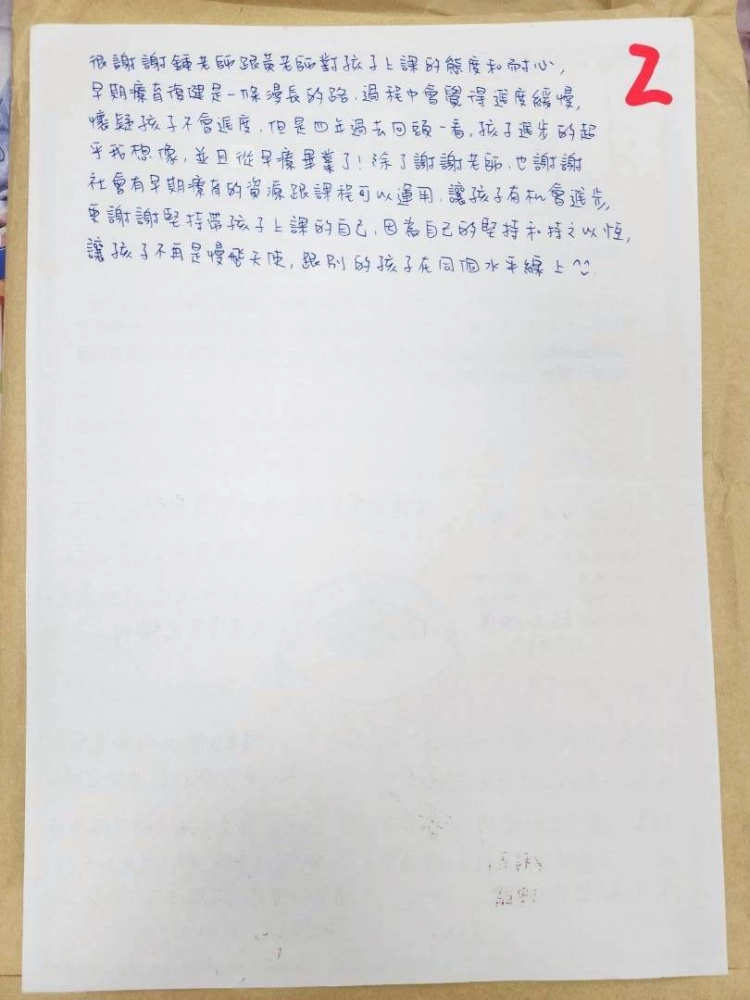 很謝謝鍾老師跟黃老師對孩子上課的態度和耐心,
2
早期療育復健是一條漫長的路,過程中會覺得進度緩慢,
懷疑孩子不會進度,但是四年過去回頭一看,孩子進步的超
乎我想像,並且從早療畢業了!除了謝謝老師,也謝謝
社會有早期療育的資源跟課程可以運用,讓孩子有机會進步,
更謝謝堅持帶孩子上課的自己,因為自己的堅持和持之以恆,
讓孩子不再是慢飛天使,跟別的孩子在同個水平線上^^